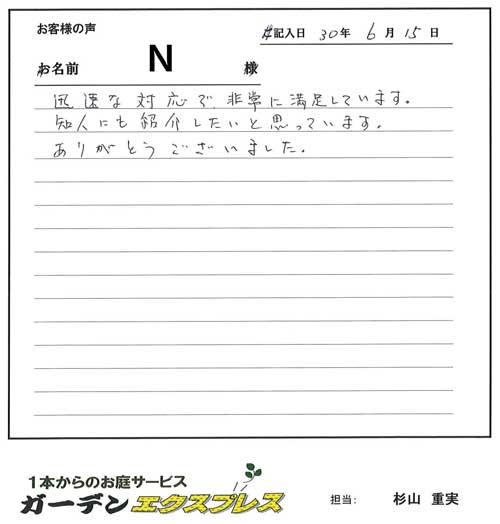 お客様の声
ご記入日 30年 6月 15日
お名前 N 様
迅速な対応で、非常に満足しています。
知人にも紹介したいと思っています。
ありがとうございました。
1本からのお庭サービス
ガーデンエクスプレス
担当: 杉山 重実